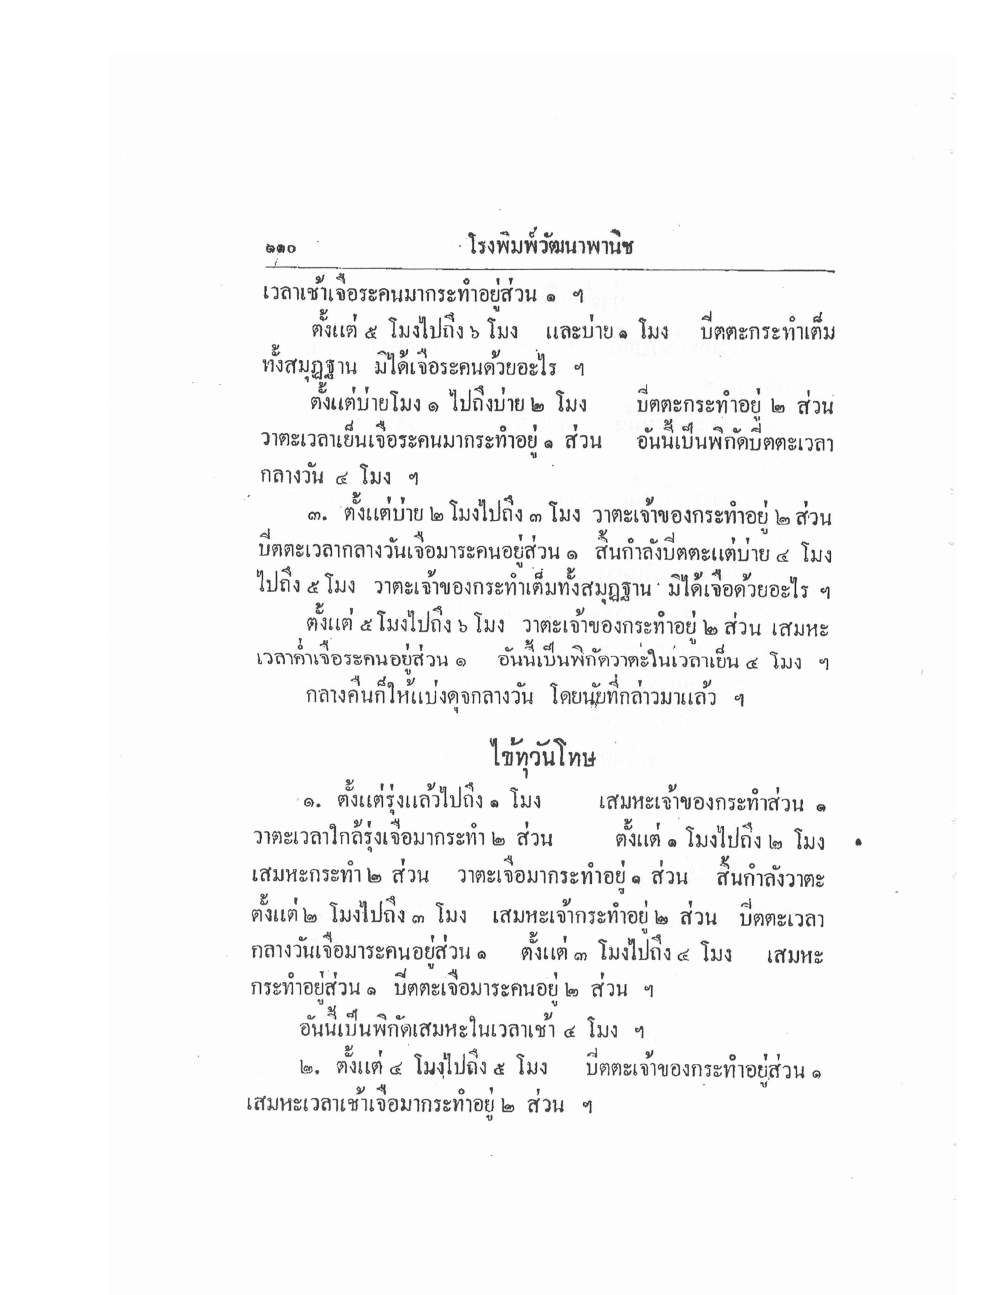 ๑๑๐ โรงพิมพ์วัฒนาพานิช
เวลาเช้าเจือระคนมากระทำอยู่ส่วน ๑ ฯ
ตั้งแต่ ๕ โมงไปถึง ๖ โมง และบ่าย ๑ โมง ปิตตะกระทำเต็ม
ทั้งสมุฏฐาน มิได้เจือระคนด้วยอะไร ฯ
ตั้งแต่บ่ายโมง ๑ ไปถึงบ่าย ๒ โมง ปิตตะกระทำอยู่ ๒ ส่วน
วาตะเวลาเย็นเจือระคนมากระทำอยู่ ๑ ส่วน อันนี้เป็นพิกัดปิตตะเวลา
กลางวัน ๔ โมง ฯ
๓. ตั้งแต่บ่าย ๒ โมงไปถึง ๓ โมง วาตะเจ้าของกระทำอยู่ ๒ ส่วน
ปิตตะเวลากลางวันเจือมาระคนอยู่ส่วน ๑ สิ้นกำลังปิตตะแต่บ่าย ๔ โมง
ไปถึง ๕ โมง วาตะเจ้าของกระทำเต็มทั้งสมุฏฐาน มิได้เจือด้วยอะไร ฯ
ตั้งแต่ ๕ โมงไปถึง ๖ โมง วาตะเจ้าของกระทำอยู่ ๒ ส่วน เสมหะ
เวลาค่ำเจือระคนอยู่ส่วน ๑ อันนี้เป็นพิกัดวาตะในเวลาเย็น ๔ โมง ฯ
กลางคืนก็ให้แบ่งดุจกลางวัน โดยนัยที่กล่าวมาแล้ว ฯ
ไข้ทุวันโทษ
๑. ตั้งแต่รุ่งแล้วไปถึง ๑ โมง เสมหะเจ้าของกระทำส่วน ๑
วาตะเวลาใกล้รุ่งเจือมากระทำ ๒ ส่วน ตั้งแต่ ๑ โมงไปถึง ๒ โมง
เสมหะกระทำ ๒ ส่วน วาตะเจือมากระทำอยู่ ๑ ส่วน สิ้นกำลังวาตะ
ตั้งแต่ ๒ โมงไปถึง ๓ โมง เสมหะเจ้ากระทำอยู่ ๒ ส่วน ปิตตะเวลา
กลางวันเจือมาระคนอยู่ส่วน ๑ ตั้งแต่ ๓ โมงไปถึง ๔ โมง เสมหะ
กระทำอยู่ส่วน ๑ ปิตตะเจือมาระคนอยู่ ๒ ส่วน ฯ
อันนี้เป็นพิกัดเสมหะในเวลาเช้า ๔ โมง ฯ
๒. ตั้งแต่ ๔ โมงไปถึง ๕ โมง ปิตตะเจ้าของกระทำอยู่ส่วน ๑
เสมหะเวลาเช้าเจือมากระทำอยู่ ๒ ส่วน ฯ